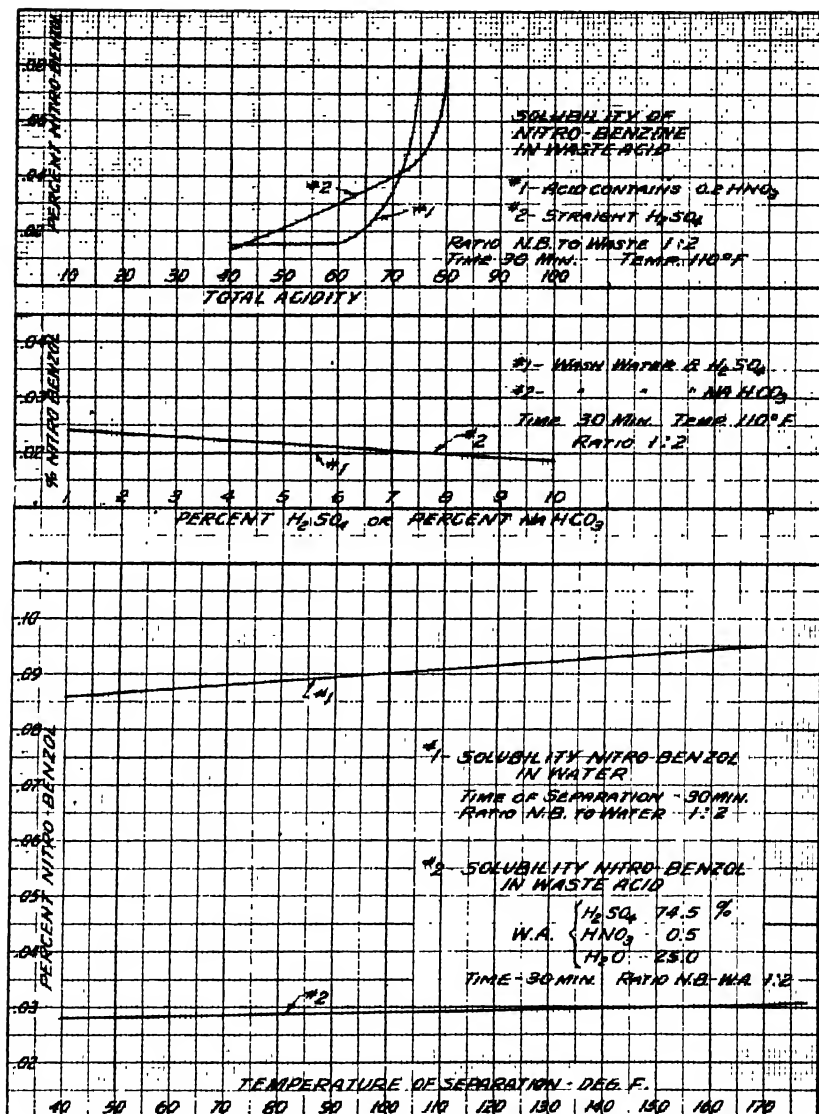 PERCENT NITRO-BENZOL
.06
.04
SOLUBILITY OF
NITRO-BENZINE
IN WASTE ACID
#1-ACID CONTAINS 0.2 HNO3
#2-STRAIGHT H2SO4
RATIO N.B. TO WASTE 1:2
TIME 30 MIN. TEMP. 110°F
#2
#1
10 20 30 40 50 60 70 80 90 100
TOTAL ACIDITY
% NITRO BENZOL
.04
.03
.02
#1- WASH WATER & H2SO4
#2- " " " NAHCO3
TIME 30 MIN. TEMP. 110°F
RATIO 1:2
#2
#1
.1 .2 .3 4 .5 .6 .7 .8 .9 1.0
PERCENT H2SO4 OR PERCENT NAHCO3
PERCENT NITRO-BENZOL
.10
.09
.08
.07
.06
.05
.04
.03
.02
#1
#1- SOLUBILITY NITRO-BENZOL
IN WATER
TIME OF SEPARATION - 30 MIN.
RATIO N.B. TO WATER 1:2
#2 SOLUBILITY NITRO-BENZOL
IN WASTE ACID
W.A. { H2SO4 74.5 %
HNO3 0.5
H2O 25.0
TIME-30 MIN. RATIO N.B-W.A. 1:2
#2
TEMPERATURE OF SEPARATION - DEG. F.
40 50 60 70 80 90 100 110 120 130 140 150 160 170